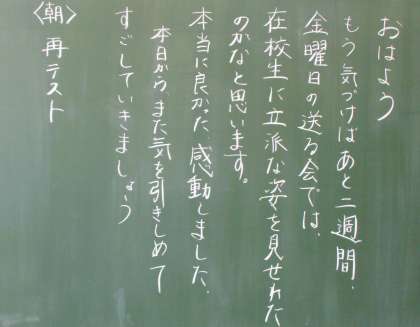 おはよう
もう気づけばあと二週間.
金曜日の送る会では、
在校生に立派な姿を見せれた
のかなと思います。
本当に良かった、感動しました.
本日から、また気を引きしめて
すごしていきましょう
〈朝〉再テスト